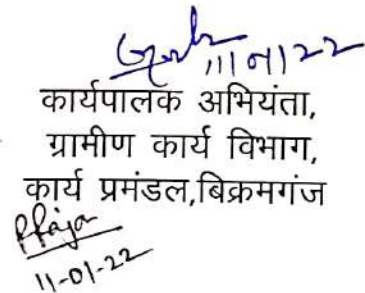 11/01/22
कार्यपालक अभियंता,
ग्रामीण कार्य विभाग,
कार्य प्रमंडल,बिक्रमगंज
11-01-22